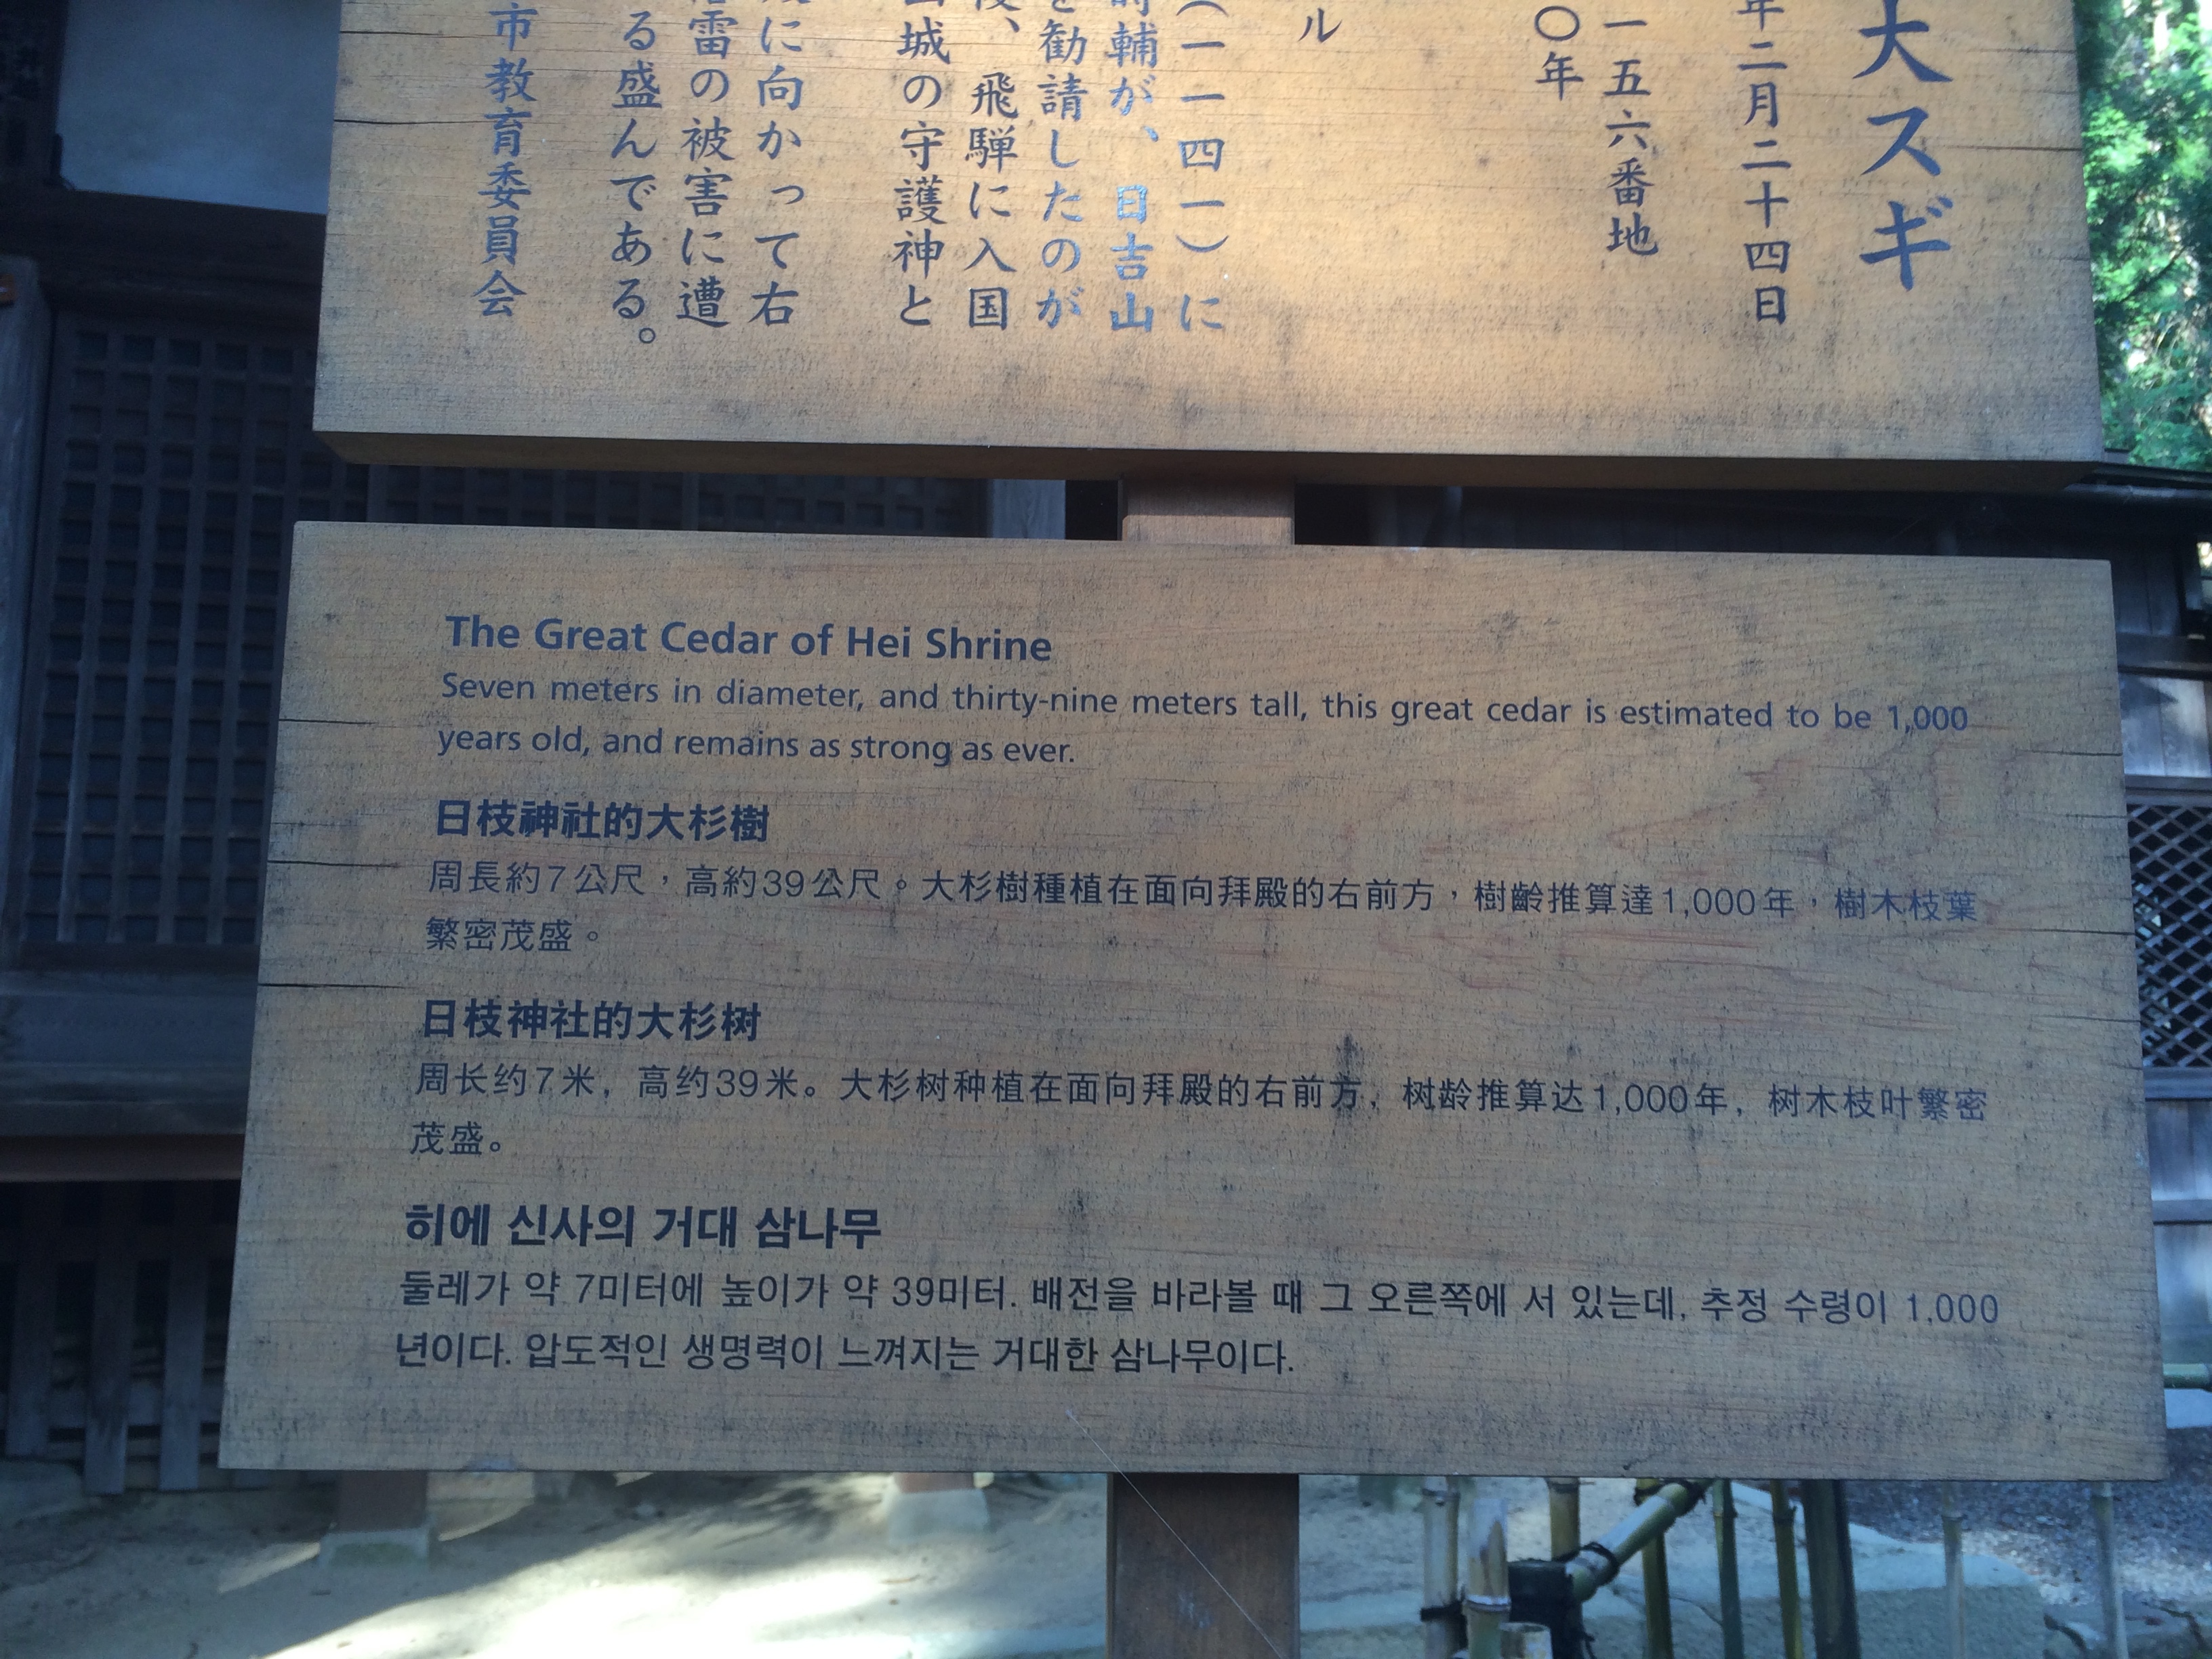 大スギ
年二月二十四日
一五六番地
〇年
ル
(一一四一)に
時輔が、日吉山
を勧請したのが
、飛騨に入国
城の守護神と
に向かって右
雷の被害に遭
る盛んである。
市教育委員会
The Great Cedar of Hei Shrine
Seven meters in diameter, and thirty-nine meters tall, this great cedar is estimated to be 1,000
years old, and remains as strong as ever.
日枝神社的大杉樹
周長約7公尺，高約39公尺。大杉樹種植在面向拜殿的右前方，樹齡推算達1,000年，樹木枝葉
繁密茂盛。
日枝神社的大杉树
周长约7米，高约39米。大杉树种植在面向拜殿的右前方，树龄推算达1,000年，树木枝叶繁密
茂盛。
히에 신사의 거대 삼나무
둘레가 약 7미터에 높이가 약 39미터. 배전을 바라볼 때 그 오른쪽에 서 있는데, 추정 수령이 1,000
년이다. 압도적인 생명력이 느껴지는 거대한 삼나무이다.